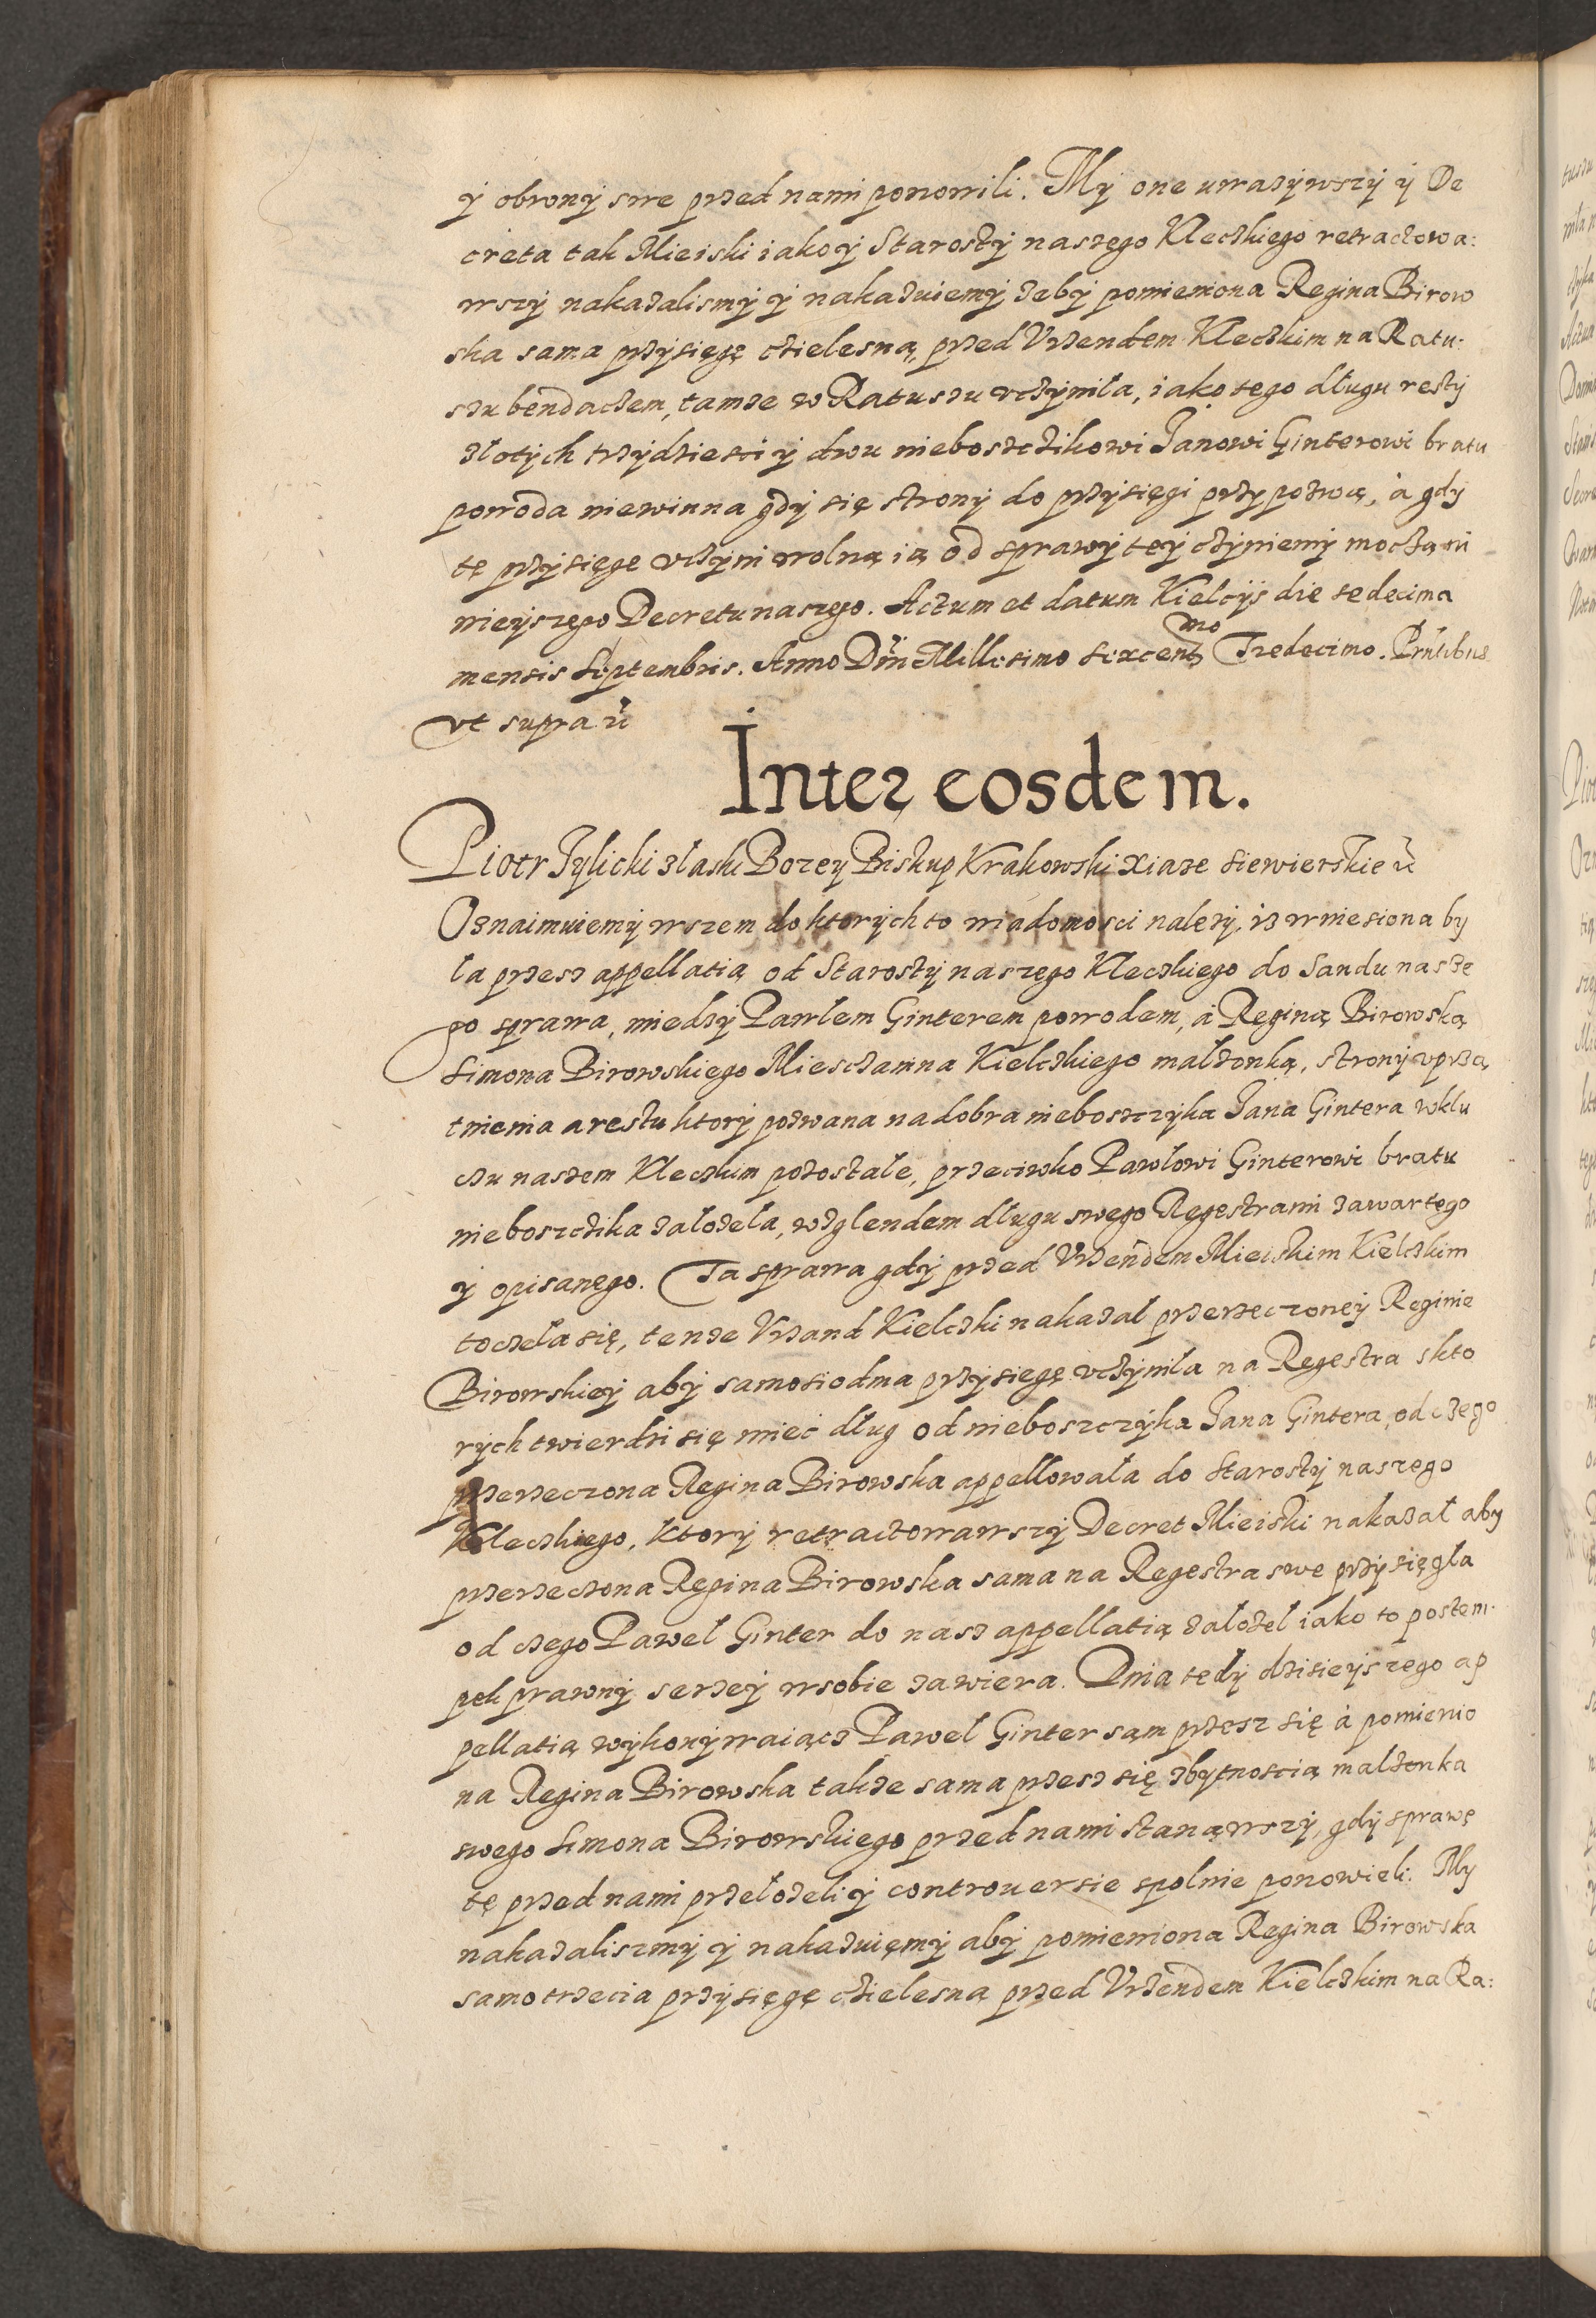 y obrony swe przed nami ponowili. My one uwazywszy y De
creta tak Mieiski iako y Starosty naszego Kleczkiego retractowa:
wszy nakazalismy y nakazuiemy zeby pomieniona Regina Birow
ska sama przysięgę czielesną, przed Vrzendem Kleczkim na Ratu:
szu bendaczem, tamze w Ratuszu vczyniła, iako tego długu reszty
złotych trzydziesci y dwu nieboszczikowi Janowi Ginterowi bratu
powoda niewinna gdy się strony do przysięgi przypozwą, à gdy
tę przysięgę vczyni wolną ią od sprawy tey czyniemy moczą ni
nieyszego Decretu naszego. Actum et datum Kielcijs die sedecima
mensis Septembris. Anno Dni Millesimo Sexcentmo Tredecimo. Pntibus
vt supra
Inter eosdem.
Piotr Tylicki z laski Bozey Biskup Krakowski xiaze Siewierskie
Oznaimuiemy wszem do ktorych to wiadomosci nalezy, iz wniesiona by
ła przesz appellatią od Starosty naszego Kleczkiego do Sandu nasze
go sprawa, miedzy Pawlem Ginterem powodem, à Reginą Birowską
Simona Birowskiego Miesczanina Kielczkiego małzonką, strony vprzą
tnienia arestu ktory pozwana na dobra nieboszczyka Jana Gintera w klu
czu naszem Kleczkim pozostałe, przeciwko Pawłowi Ginterowi bratu
nieboszczika załozela, wzglendem długu swego Regestrami zawartego
y opisanego. Ta sprawa gdy przed Vrzendem Mieiskim Kielczkim
toczeła się, tenze Vrzand Kielczki nakazał przerzeczoney Reginie
Birowskiey aby samosiodma przysięgę vczyniła na Regestra z kto
rych twierdzi się mieć dług od nieboszczyka Jana Gintera, od czego
przerzeczona Regina Birowska appellowała do Starosty naszego
Kleczkiego, ktory retractowawszy Decret Mieiski nakazał aby
przerzeczona Regina Birowska sama na Regestra swe przysięgła
od czego Paweł Ginter do nasz appellatią załozeł iako to postem-
pek prawny serzey w sobie zawiera. Dnia tedy dzisieyszego ap
pellatią wykonywaiącz Paweł Ginter sąm przesz się à pomienio
na Regina Birowska takze sama przesz się z bytnoscią malzonka
swego Simona Birowskiego przed nami stanąwszy, gdy sprawę
tę przed nami przełozeli y controuersie spolnie ponowieli. My
nakazaliszmy y nakazuięmy aby pomieniona Regina Birowska
samotrzecia przysięgę czielesną przed Vrzendem Kielczkim na Ra: